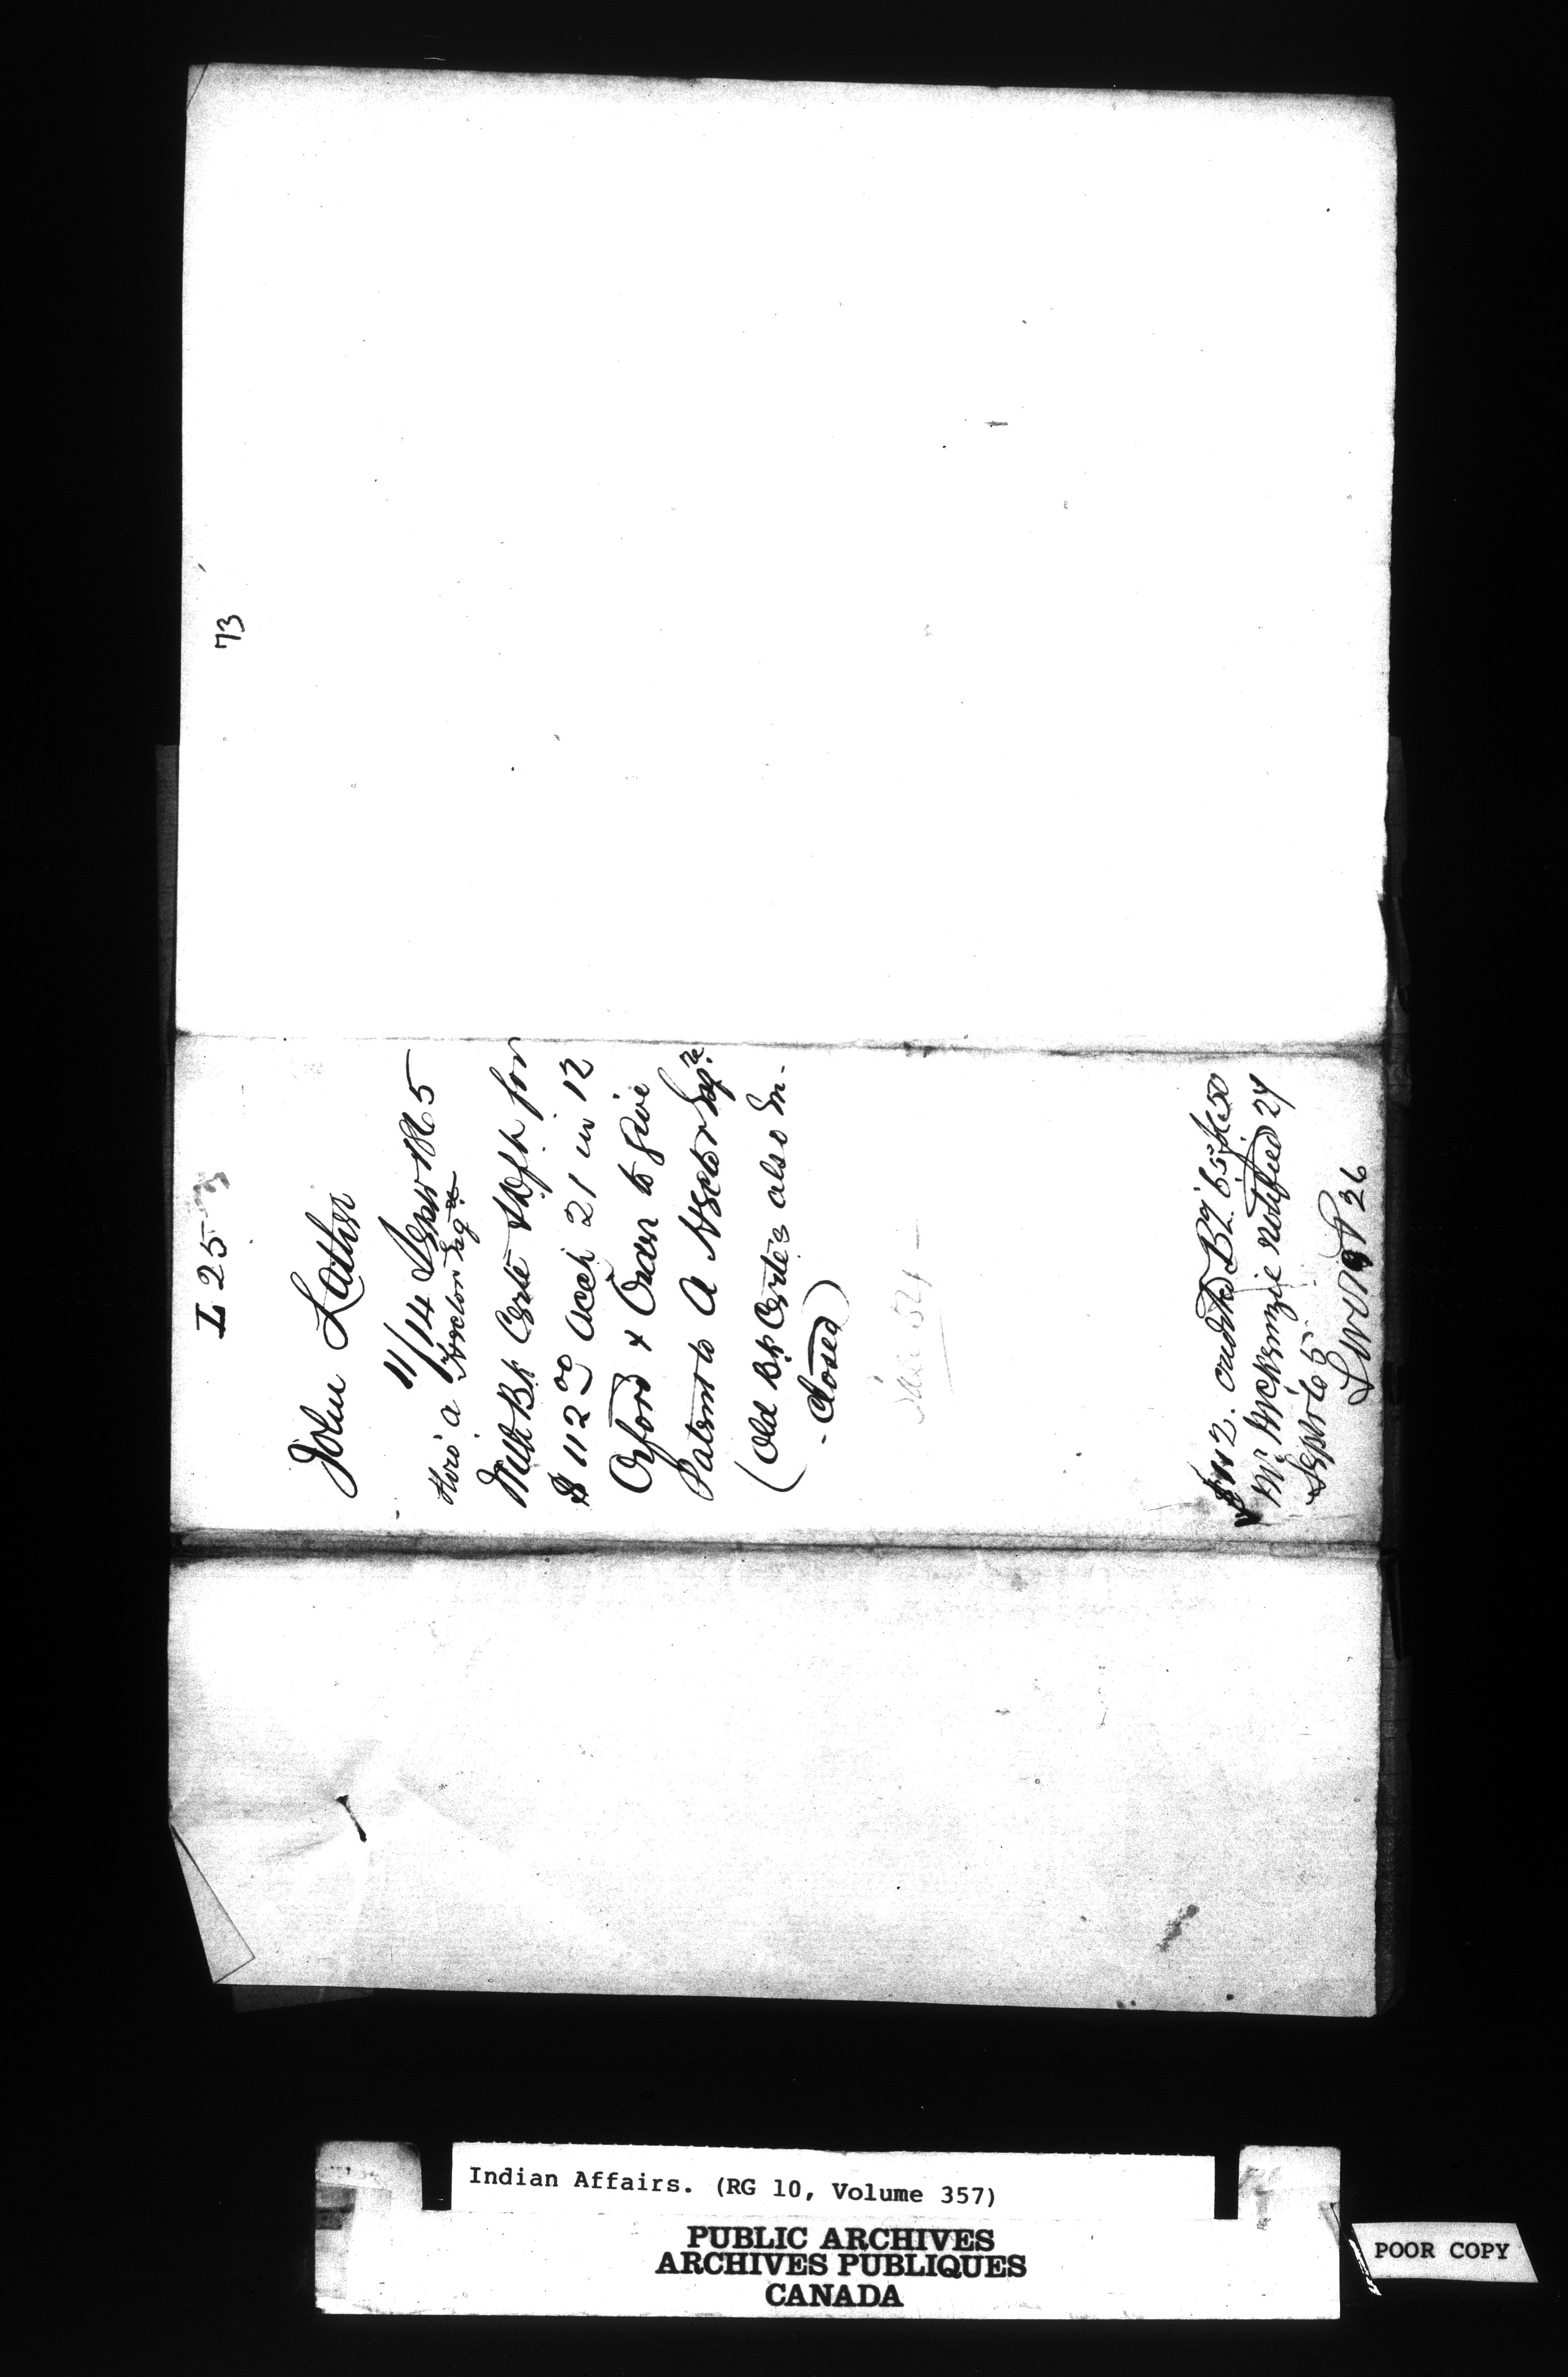 73
L 25
John Lather
11/14 Septr 1865
thro' a Proctor Esqre
With Bk Certe of Dept for
$112 00 acct 21 in 12
Oxford & Orcen to give
Patent to A Hector Esqre
(Old Bk Certes also In-
-closed)
$112. credited BL. 65. p 50
Mr McKenzie notified 27
Septr 65
P 36
Indian Affairs. (RG 10, Volume 357)
PUBLIC ARCHIVES
ARCHIVES PUBLIQUES
CANADA
POOR COPY